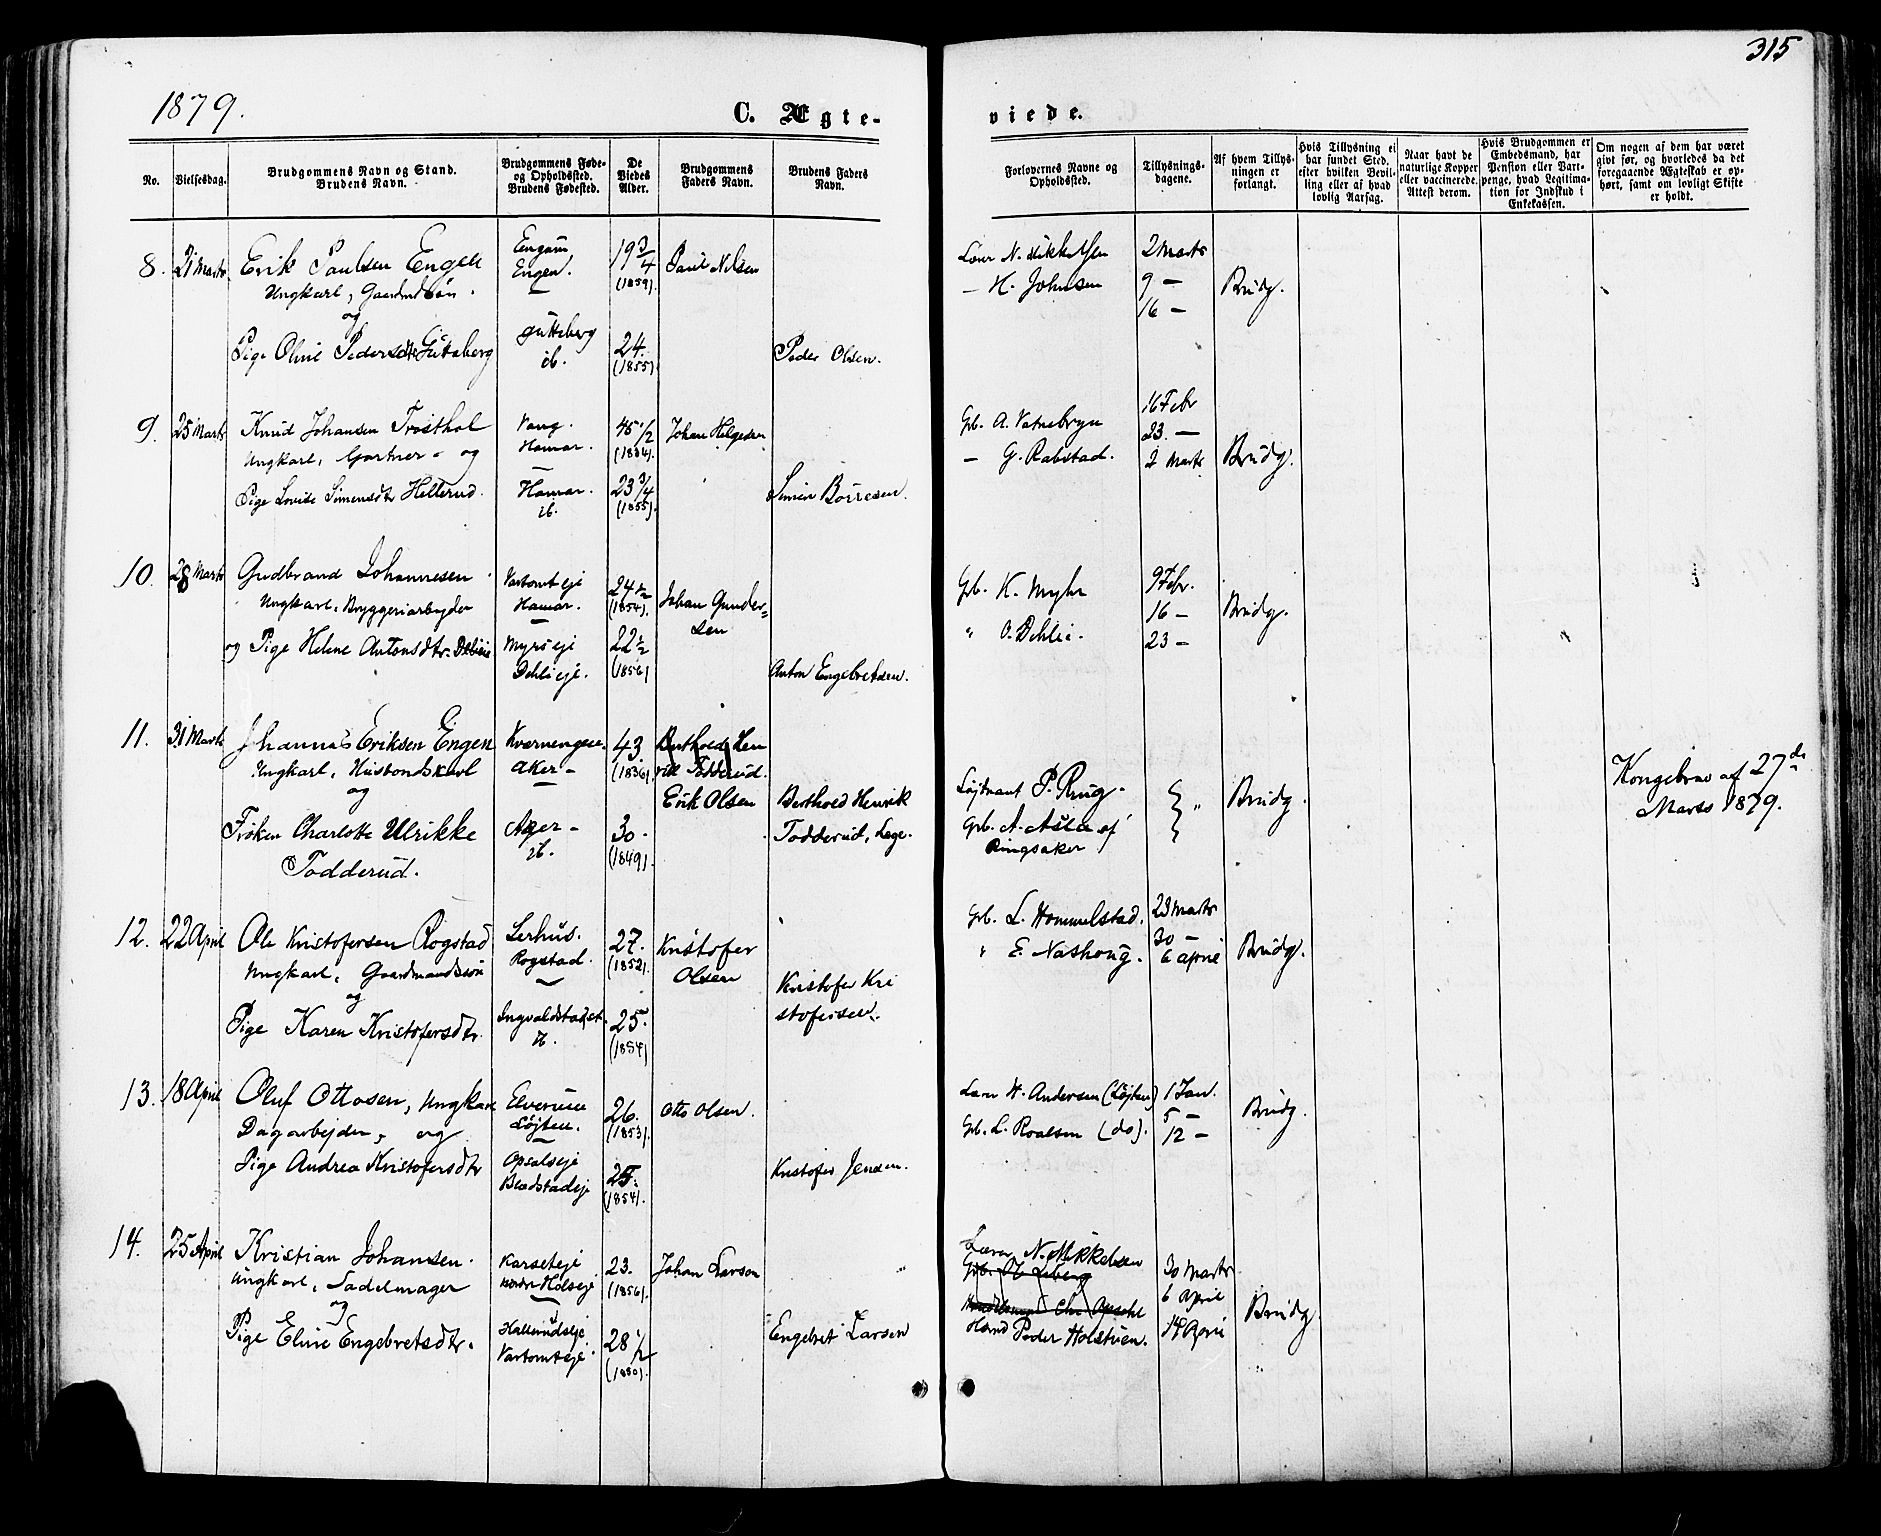 315
1879.
C. Ægte-
viede.
No.
Vielsesdag.
Brudgommens Navn og Stand.
Brudens Navn.
Brudgommens Føde-
og Opholdssted.
Brudens Fødested.
De
Viedes
Alder.
Brudgommens
Faders Navn.
Brudens Faders
Navn.
Forlovernes Navne og
Opholdssted.
Tillysnings-
dagene.
Af hvem Tillys-
ningen er
forlangt.
Hvis Tillysning ei
har fundet Sted,
efter hvilken Bevil-
ling eller af hvad
lovlig Aarsag.
Naar havt de
naturlige Kopper
eller vaccinerede.
Attest derom.
Hvis Brudgommen er
Embedsmand, har
Pension eller Vart-
penge, hvad Legitima-
tion for Indskud i
Enkekassen.
Om nogen af dem har været
givt før, og hvorledes da det
foregaaende Ægteskab er op-
hørt, samt om lovligt Skifte
er holdt.
8. 21 Marts Erik Paulsen Engen
Engen. 19 3/4 Paul Nilsen
Ungkarl, (1859).
og
Pige Oline Pedersdtr Gutteberg
Gutteberg
ib. 24. (1855) Peder Olsen.
Lærer N. Mikkelsen 2 Marts
— H. Johnsen 9 — Brudg.
16 —
9. 25 Marts Knud Johansen Frøsthol
Vang. 45 1/2 Johan Helgesen
Ungkarl, Gartner - og
Hamar.
Pige Lovise Simensdtr Hellerud.
Hamar. 23 3/4
ib. (1855). Simen Børresen.
Gb. A. Vatnebryn 16 Febr
23. —
— G. Rabstad. 2 Marts Brudg.
10. 28 Marts Gudbrand Johannesen
Vartomt eje 24 1/2
Ungkarl, Bryggeriarbejder
Hamar. (1854). Johan Gunder=
sen
og Pige Helene Antonsdtr. Dehlie
Myrseje 22 1/2
Dehli eje. (1856) Anton Engebretsen.
Gb. K. Myhr 9 Febr.
16 — Brudg.
" O. Dehli. 23 —
11. 31 Marts Johannes Eriksen Engen
Kværnengen. 43 Berthold Hen
Ungkarl, Husbondskarl
Aker — (1836) rik Todderud.
og
Erik Olsen Berthold Henrik
Frøken Charlotte Ulrikke
Ager — 30. Todderud, Læge.
ib. (1849).
Todderud.
Løjtnant P. Rug.
" Brudg.
Gb. A. Alm af
Ringsaker
Kongebrev af 27de
Marts 1879.
12. 22 April Ole Kristofersen Rogstad
Lerhus. 27. Kristofer
Ungkarl, Gaardmandssøn
Rogstad. (1852). Olsen
og
Kristofer Kri
Pige Karen Kristofersdtr.
25. stofersen.
(1854)
Gb. L. Hommelstad. 23 Marts
30 —
" E. Nashoug. 6 April Brudg.
13. 18 April Oluf Ottosen, Ungkarl
Elverum 26. Otto Olsen.
Dagarbejder, og
Løjten. (1853).
Pige Andrea Kristofersdtr
Opsalseje 25.
(1854). Kristofer Jensen.
Lærer H. Andersen (Løjten) 1 Jan.
5 — Brudg.
Gb. L. Roalsen (do). 12 —
14. 25 April Kristian Johansen.
Karseteje 23. Johan Larsen
Ungkarl, Sadelmager
Holseje (1856).
og
Pige Eline Engebretsdtr.
Hallerudseje 28 1/2 Engebret Larsen
Vartomteje. (1850).
Lærer N. Mikkelsen
30 Marts
6 April Brudg.
Peder Holstuen. 14 April